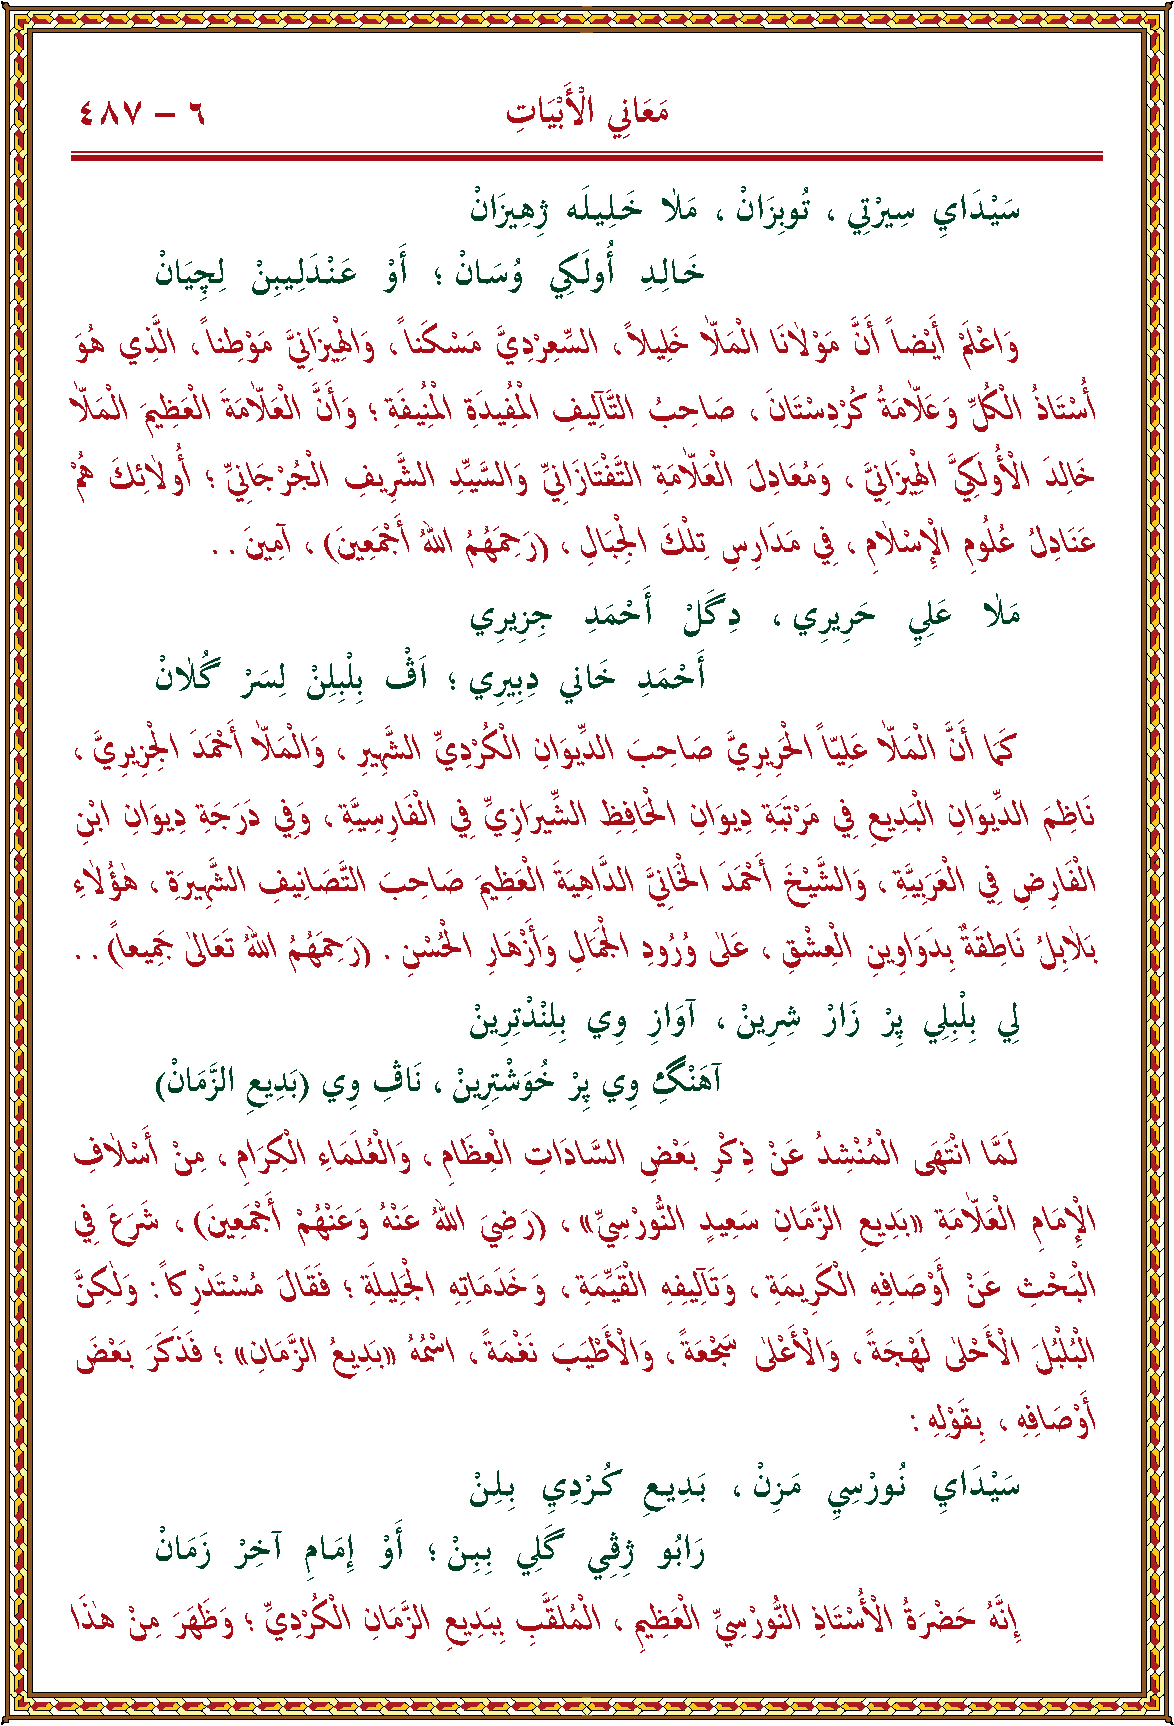 مَعَانِي الْأَبْيَاتِ ٦ - ٤٨٧
سَيْدَايِ سِيرْتِي ، تُوبِزَانْ ، مَلاٰ خَلِيلَه ژِهِيزَانْ
خَالِدِ أُولَكِي وُسَانْ ؛ أَوْ عَنْدَلِيبِنْ لِچِيَانْ
وَاعْلَمْ أَيْضاً أَنَّ مَوْلاٰنَا الْمَلّاٰ خَلِيلاً ، السِّعِرْدِيَّ مَسْكَناً ، وَالْهِيْزَانِيَّ مَوْطِناً ، الَّذِي هُوَ
أُسْتَاذُ الْكُلِّ وَعَلّاٰمَةُ كُرْدِسْتَانَ ، صَاحِبُ التَّآلِيفِ الْمُفِيدَةِ الْمُنِيفَةِ ؛ وَأَنَّ الْعَلّاٰمَةَ الْعَظِيمَ الْمَلّاٰ
خَالِدَ الْأُولَكِيَّ الْهِيْزَانِيَّ ، وَمُعَادِلَ الْعَلّاٰمَةِ التَّفْتَازَانِيِّ وَالسَّيِّدِ الشَّرِيفِ الْجُرْجَانِيِّ ؛ أُولٰئِكَ هُمْ
عَنَادِلُ عُلُومِ الْإِسْلاٰمِ ، فِي مَدَارِسِ تِلْكَ الْجِبَالِ ، (رَحِمَهُمُ اللهُ أَجْمَعِينَ) ، آمِينَ . .
مَلاٰ عَلِيِ حَرِيرِي ، دِگَلْ أَحْمَدِ جِزِيرِي
أَحْمَدِ خَانِي دِبِيرِي ؛ اَڤْ بِلْبِلِنْ لِسَرْ گُلاٰنْ
كَمَا أَنَّ الْمَلّاٰ عَلِيّاً الْحَرِيرِيَّ صَاحِبَ الدِّيوَانِ الْكُرْدِيِّ الشَّهِيرِ ، وَالْمَلّاٰ أَحْمَدَ الْجِزِيرِيَّ ،
نَاظِمَ الدِّيوَانِ الْبَدِيعِ فِي مَرْتَبَةِ دِيوَانِ الْحَافِظِ الشِّيرَازِيِّ فِي الْفَارِسِيَّةِ ، وَفِي دَرَجَةِ دِيوَانِ ابْنِ
الْفَارِضِ فِي الْعَرَبِيَّةِ ، وَالشَّيْخَ أَحْمَدَ الْخَانِيَّ الدَّاهِيَةَ الْعَظِيمَ صَاحِبَ التَّصَانِيفِ الشَّهِيرَةِ ، هٰؤُلاٰءِ
بَلاٰبِلُ نَاطِقَةٌ بِدَوَاوِينِ الْعِشْقِ ، عَلىٰ وُرُودِ الْجَمَالِ وَأَزْهَارِ الْحُسْنِ . (رَحِمَهُمُ اللهُ تَعَالىٰ جَمِيعاً) . .
لِي بِلْبِلِي پِرْ زَارْ شِرِينْ ، آوَازِ وِي بِلِنْدْتِرِينْ
آهَنْگِ وِي پِرْ خُوَشْتِرِينْ ، نَاڤِ وِي (بَدِيعِ الزَّمَانْ)
لَمَّا انْتَهَى الْمُنْشِدُ عَنْ ذِكْرِ بَعْضِ السَّادَاتِ الْعِظَامِ ، وَالْعُلَمَاءِ الْكِرَامِ ، مِنْ أَسْلاٰفِ
الْإِمَامِ الْعَلّاٰمَةِ «بَدِيعِ الزَّمَانِ سَعِيدٍ النُّورْسِيِّ» ، (رَضِيَ اللهُ عَنْهُ وَعَنْهُمْ أَجْمَعِينَ) ، شَرَعَ فِي
الْبَحْثِ عَنْ أَوْصَافِهِ الْكَرِيمَةِ ، وَتَآلِيفِهِ الْقَيِّمَةِ ، وَخَدَمَاتِهِ الْجَلِيلَةِ ؛ فَقَالَ مُسْتَدْرِكاً : وَلٰكِنَّ
الْبُلْبُلَ الْأَحْلىٰ لَهْجَةً ، وَالْأَعْلىٰ سَجْعَةً ، وَالْأَطْيَبَ نَغْمَةً ، اسْمُهُ «بَدِيعُ الزَّمَانِ» ؛ فَذَكَرَ بَعْضَ
أَوْصَافِهِ ، بِقَوْلِهِ :
سَيْدَايِ نُورْسِي مَزِنْ ، بَدِيعِ كُرْدِي بِلِنْ
رَابُو ژِڤِي گَلِي بِبِنْ ؛ أَوْ إِمَامِ آخِرْ زَمَانْ
إِنَّهُ حَضْرَةُ الْأُسْتَاذِ النُّورْسِيِّ الْعَظِيمِ ، الْمُلَقَّبِ بِبَدِيعِ الزَّمَانِ الْكُرْدِيِّ ؛ وَظَهَرَ مِنْ هٰذَا